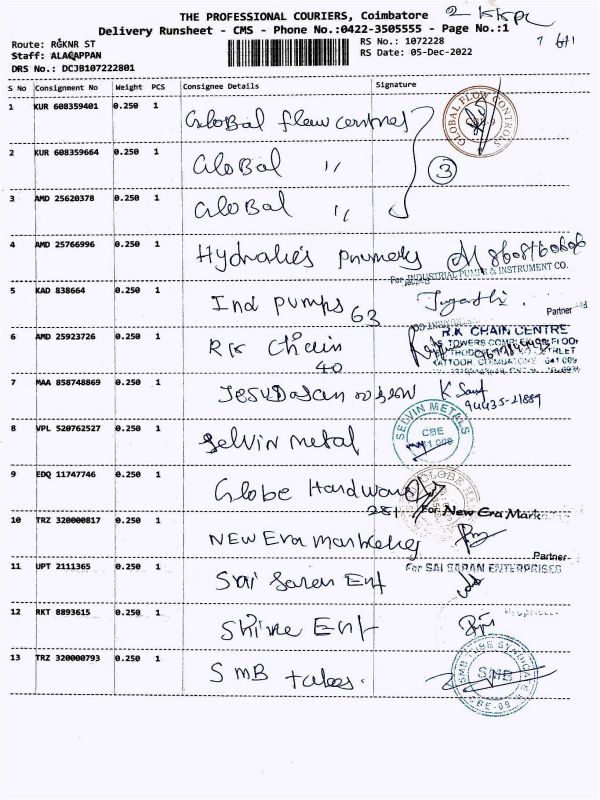 THE PROFESSIONAL COURIERS, Coimbatore
2 KKPL
Delivery Runsheet - CMS - Phone No.:0422-3505555 - Page No.:1
Route: RGKNR ST
RS No.: 1072228
Staff: ALAGAPPAN
RS Date: 05-Dec-2022
DRS No.: DCJB107222801
S No Consignment No Weight PCS Consignee Details Signature
1 KUR 608359401 0.250 1 Global flow controls
GLOBAL FLOW CONTROLS
2 KUR 608359664 0.250 1 Global "
3
3 AMD 25620378 0.250 1 Global "
4 AMD 25766996 0.250 1 Hydralics
For INDUSTRIAL PUMPS & INSTRUMENT CO.
5 KAD 838664 0.250 1 Ind Pumps 63
Partner
6 AMD 25923726 0.250 1 RK Chain
40
R.K CHAIN CENTRE
7 MAA 858748869 0.250 1 Jesudasan
94435-21889
8 VPL 520762527 0.250 1 Selvin metal
SELVIN METALS
CBE
9 EDQ 11747746 0.250 1 Globe Hardware
281
For New Era Mark
10 TRZ 320000817 0.250 1 New Era marketing
Partner
11 UPT 2111365 0.250 1 Sai Saran Ent
For SAI SARAN ENTERPRISES
12 RKT 8893615 0.250 1 Shine Ent
13 TRZ 320000793 0.250 1 SMB tubes.
SMB TUBE SYNDICATE
SMB
CBE-09